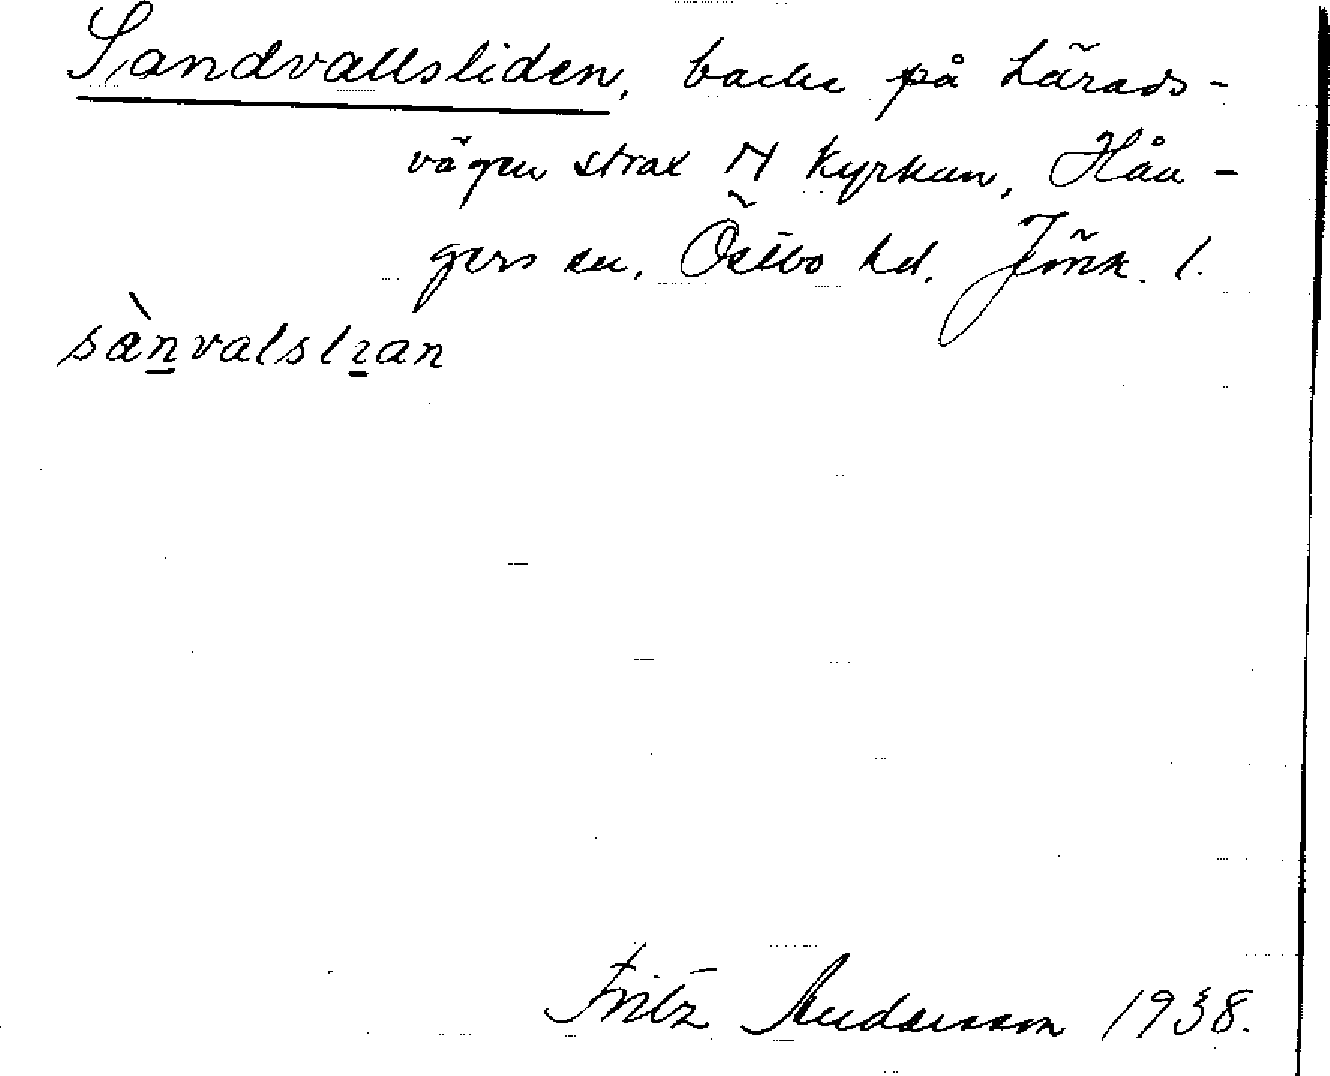 Sandvallsliden, backe på härads-
vägen strax N kyrkan, Hån-
gers sn, Östbo hd. Jönk. l.
sànvalslian
Fritz Andersson 1938.